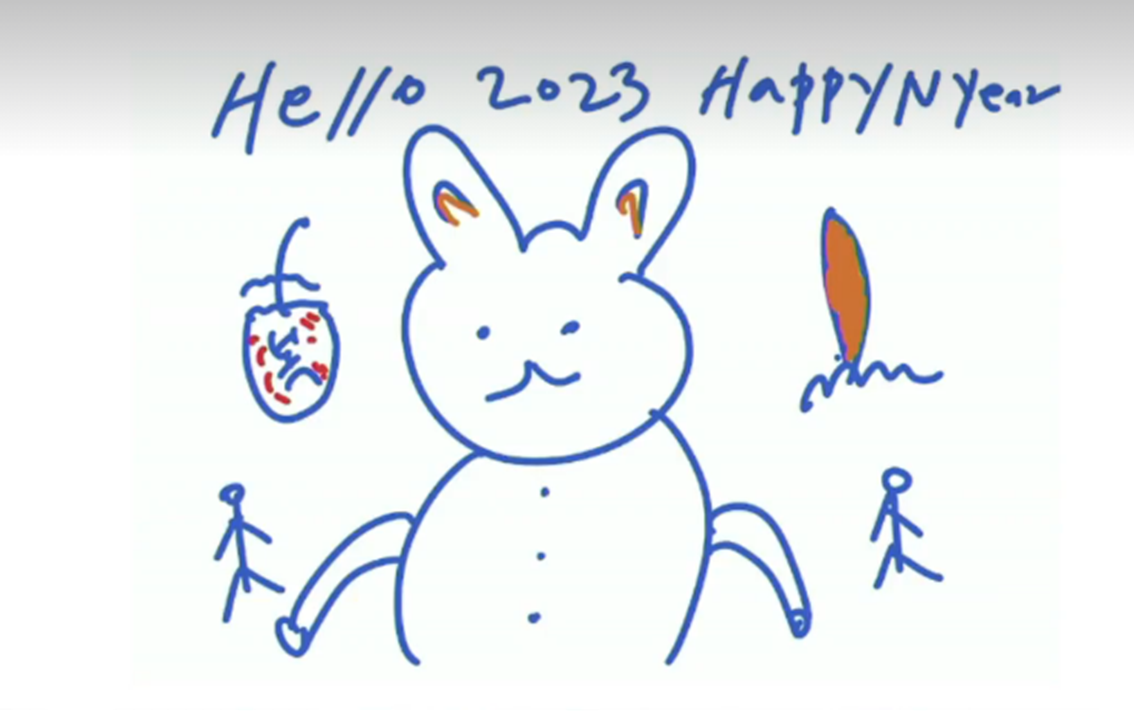 Hello 2023 Happy N Year